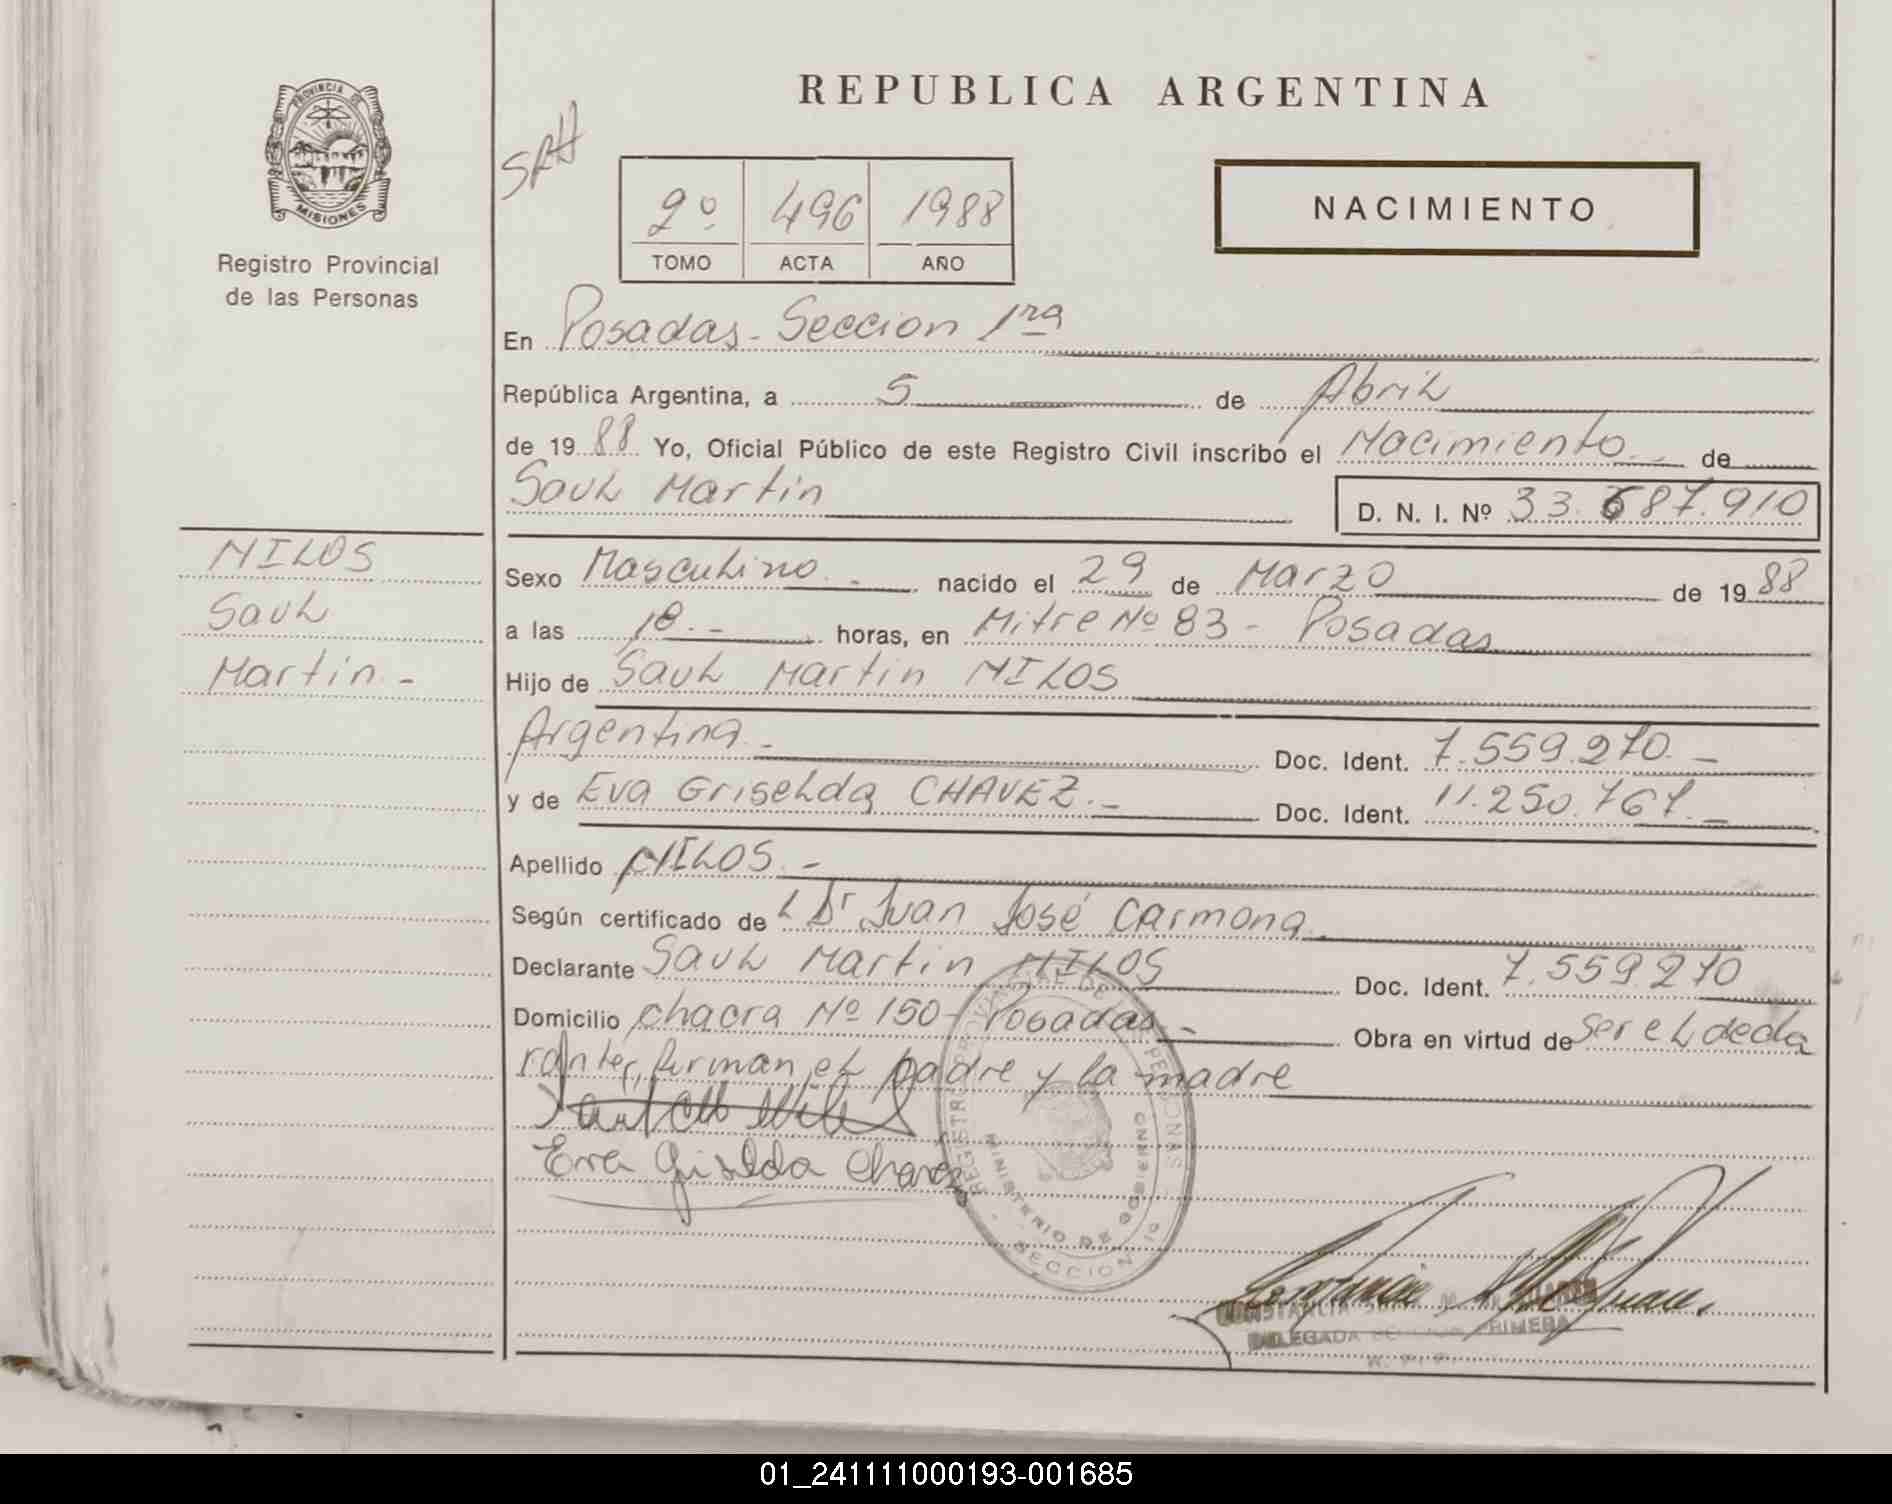 PROVINCIA DE
MISIONES
Registro Provincial
de las Personas
REPUBLICA ARGENTINA
2º 496 1988
TOMO ACTA AÑO
NACIMIENTO
En Posadas - Seccion 1ra
República Argentina, a 5 de Abril
de 19 88 Yo, Oficial Público de este Registro Civil inscribo el Nacimiento de
Saul Martin
D. N. I. Nº 33.687.910
MILOS
Saul
Martin.-
Sexo Masculino.- nacido el 29 de Marzo de 19 88
a las 18.- horas, en Mitre Nº 83 - Posadas
Hijo de Saul Martin MILOS
Argentina.- Doc. Ident. 7.559.270.-
y de Eva Griselda CHAVEZ.- Doc. Ident. 11.250.767.-
Apellido MILOS.-
Según certificado del Dr Juan José Carmona.
Declarante Saul Martin MILOS Doc. Ident. 7.559.270
Domicilio chacra Nº 150 - Posadas.- Obra en virtud de ser el decla
rante, firman el padre y la madre
Eva Griselda Chavez
REGISTRO PROVINCIAL DE LAS PERSONAS
MINISTERIO DE GOBIERNO
SECCION 1º
CONSTANCIA
DELEGADA SECCION PRIMERA
R. P. P.
01_241111000193-001685